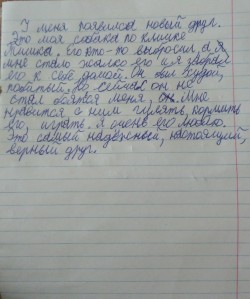 У меня появился новый друг.
Это моя собака по кличке
Мишка. Его кто-то выбросил, а я
мне стало жалко его и я забрал
его к себе домой. Он был худой,
побитый, но сейчас он не
стал бояться меня, он. Мне
нравится с ним гулять, кормить
его, играть. Я очень его люблю.
Это самый надежный, настоящий,
верный друг.